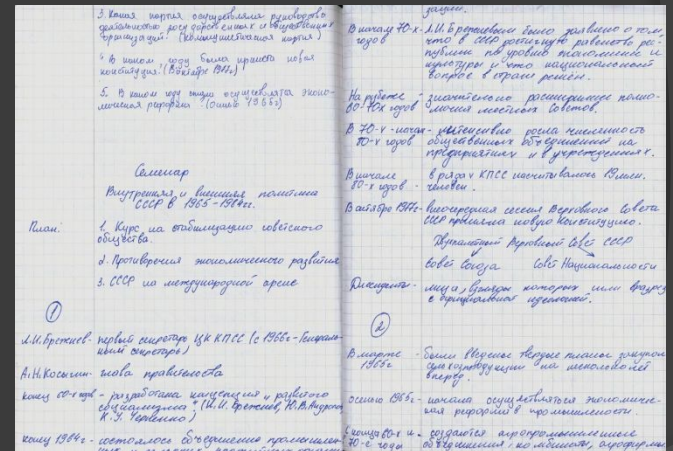 3. Какая партия осуществляла руководство
деятельностью государственных и общественных
организаций? (Коммунистическая партия)
4. В каком году была принята новая
конституция? (В октябре 1977г)
5. В каком году стала осуществляться эконо-
мическая реформа? (Осенью 1965г)
Семинар
Внутренняя и внешняя политика
СССР в 1965-1984гг.
План:
1. Курс на стабилизацию советского
общества.
2. Противоречия экономического развития
3. СССР на международной арене
1
Л.И.Брежнев- первый секретарь ЦК КПСС (с 1966г-Генераль-
ный секретарь)
А.Н.Косыгин- глава правительства
конец 60-х годов - разработана концепция "развитого
социализма" (Л.И.Брежнев, Ю.В.Андропов,
К.У.Черненко)
конец 1964г - состоялось объединение промышлен-
В начале 70-х годов - Л.И.Брежневым было заявлено о том,
что в СССР достигнуто равенство рес-
публик по уровню экономики и
культуры и что национальный
вопрос в стране решён.
На рубеже - значительно расширились полно-
60-70х годов мочия местных Советов.
В 70-х -начале интенсивно росла численность
80-х годов общественных объединений на
предприятиях и в учреждениях.
В начале в рядах КПСС насчитывалось 19 млн.
80-х годов - человек.
В октябре 1977г- внеочередная сессия Верховного Совета
СССР приняла новую Конституцию.
Двухпалатный Верховный Совет СССР
Совет Союза Совет Национальности
Диссиденты- лица, взгляды которых шли вразрез
с официальной идеологией.
2
В марте - были введены твердые планы закупок
1965г сельхозпродукции на несколько лет
вперед.
осенью 1965г- начала осуществляться экономичес-
кая реформа в промышленности.
с конца 60-х и - создаются агропромышленные
70-е года объединения, комбинаты, агрофирмы